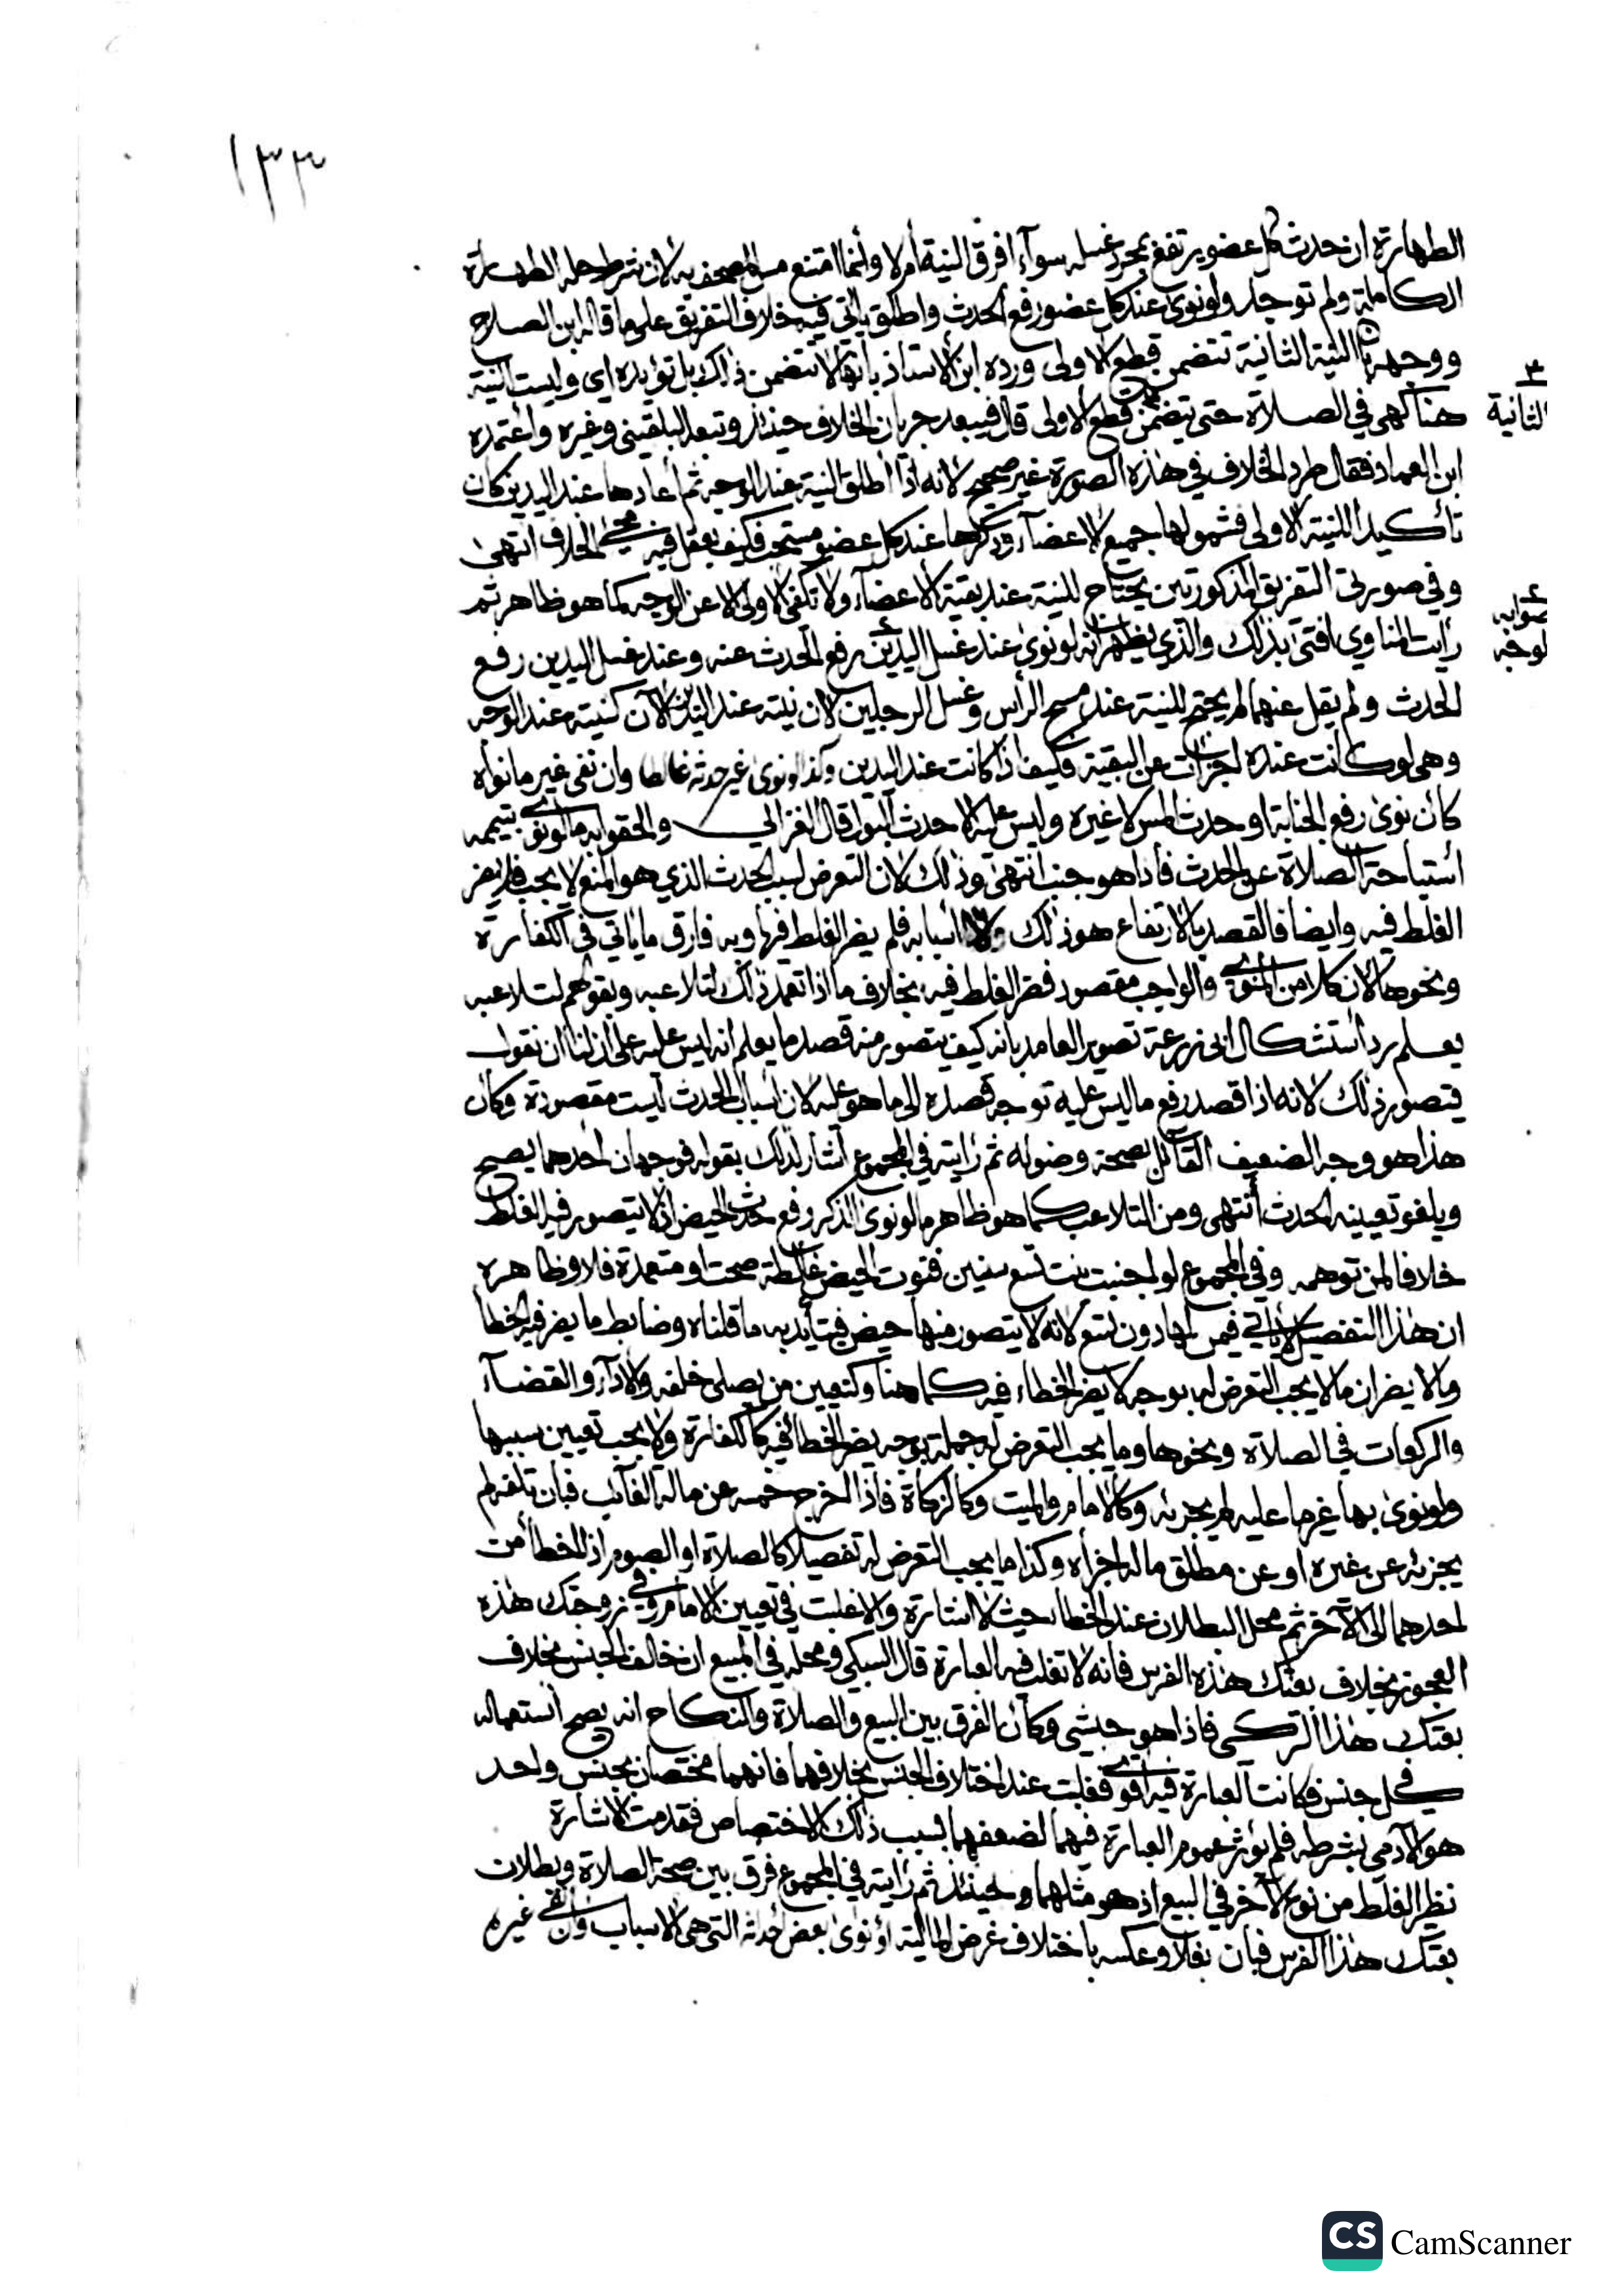 ١٣٣
الطهارة ان حدث كل عضو يرتفع بمجرد غسله سوآء افرق النية أم لا وأنما امتنع مس المصحف به لان شرط حله الطهارة
الكاملة ولم توجد ولو نوى عند كل عضو رفع الحدث واطلق يأتي فيه خلاف التفريق على ما قاله ابن الصلاح
ووجهه بأن النية الثانية تتضمن قطع الاولى ورده ابن الاستاذ بأنها لا تتضمن ذلك بل تؤيده اي وليست النية
٣
الثانية
هنا كهي في الصلاة حتى يتضمن قطع الاولى قال فيبعد جريان الخلاف حينئذ وتبعه البلقيني وغيره وأعتمده
ابن العماد فقال طرد الخلاف في هذه الصورة غير صحيح لانه اذا أطلق النية عند الوجه ثم أعادها عند اليدين كان
تأكيدا للنية الاولى فشمولها جميع الاعضآء وذكرها عند كل عضو مستحب فكيف يعقل فيه مجئ الخلاف انتهى
وفي صورتي التفريق المذكورتين يحتاج للنية عند بقية الاعضآء ولا تكفي الاولى الا عن الوجه كما هو ظاهر ثم
٤
صوابه
لوجه
رأيت المناوي افتى بذلك والذي يظهر انه لو نوى عند غسل اليدين رفع الحدث عنه وعند غسل اليدين رفع
الحدث ولم يقل عنهما لم يحتج للنية عند مسح الرأس وغسل الرجلين لان نيته عند اليدين الآن كنيته عند الوجه
وهي لو كانت عنده اجزأت عن البقية فكيف اذا كانت عند اليدين وكذا لو نوى غير حدثه غالطا وان نفى غير ما نواه
كأن نوى رفع الجنابة او حدث المس لا غيره وليس عليه الا حدث البول قال الغزالي والحقوا به ما لو نوى بتيممه
أستباحة الصلاة عن الحدث فاذا هو جنب انتهى وذلك لان التعرض لسبب الحدث الذي هو المنع لا يجب فلم يضر
الغلط فيه وايضا فالقصد بالارتفاع هو ذلك لا أسبابه فلم يضر الغلط فيها وبه فارق ما يأتي في الكفارة
ونحوها لان كلا من المنوي والواجب مقصود فضر الغلط فيه بخلاف ما اذا تعمد ذلك لتلاعبه وبقولهم لتلاعبه
يعلم رد أستشكال ابي زرعة تصوير العامد بانه كيف يتصور منه قصد ما يعلم انه ليس عليه على أن لنا ان نقول
فيتصور ذلك لانه اذا قصد رفع ما ليس عليه توجه قصده الى ما هو عليه لان أسباب الحدث ليست مقصودة وكأن
هذا هو وجه الضعيف القائل بصحة وضوئه ثم رأيته في المجموع أشار لذلك بقوله فوجهان احدهما يصح
ويلغو تعيينه الحدث أنتهى ومن التلاعب كما هو ظاهر ما لو نوى الذكر رفع حدث الحيض اذ لا يتصور فيه الغلط
خلافا لمن توهمه وفي المجموع لو اجنبت بنت تسع سنين فنوت الحيض غالطة صحت او متعمدة فلا وظاهره
ان هذا التفصيل لا يأتي فيمن لها دون تسع لانه لا يتصور منها حيض فيتأيد به ما قلناه وضابط ما يضر فيه الخطأ
وما لا يضر ان ما لا يجب التعرض له بوجه لا يضر الخطاء فيه كما هنا وكتعيين من يصلي خلفه والأدآء والقضآء
والركعات في الصلاة ونحوها وما يجب التعرض له جملة بوجه يضر الخطأ فيه كالكفارة ولا يجب تعيين سببها
ولو نوى بها غير ما عليه لم يجزئه وكالامام والميت وكالزكاة فاذا اخرج خمسه عن ماله الغائب فبان تلفه لم
يجزئه عن غيره او عن مطلق ماله اجزأه وكذا ما يجب التعرض له تفصيلا كالصلاة او الصوم اذ الخطأ من
احدهما الى الآخر ثم محل البطلان عند الخطأ حيث لا اشارة والا غلبت في تعيين الامام وفي زوجتك هذه
العجوز بخلاف بعتك هذه الفرس فانه لا تغلب فيه العبارة قال السبكي ومحله في المبيع ان خالف الجنس بخلاف
بعتك هذا التركي فاذا هو حبشي وكأن الفرق بين البيع والصلاة والنكاح انه يصح أستعماله
في كل جنس فكانت العبارة فيه اقوى فغلبت عند اختلاف الجنس بخلافهما فانهما مختصان بجنس واحد
هو الآدمي بشرطه فلم يؤثر عموم العبارة فيهما لضعفهما بسبب ذلك الاختصاص فقدمت الاشارة
نظير الغلط من نوع لآخر في البيع اذ هو مثلهما وحينئذ ثم رأيته في المجموع فرق بين صحة الصلاة وبطلان
بعتك هذا الفرس فبان بغلا وعكسه باختلاف غرض المالية أو نوى بعض أحداثه التي هي الاسباب وأن نفى غيره
CS CamScanner